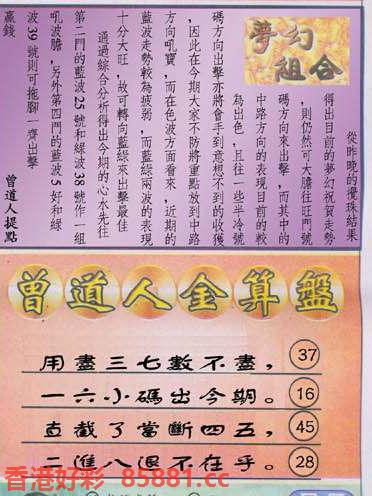 夢幻
組合
從昨晚的攪珠結果
得出目前的夢幻祝賀走勢
，則仍然可大膽往旺門號
碼方向來出擊，而其中的
中路方向的表現目前較
為出色，且往一些半冷號
碼方向出擊亦將會手到意想不到的收獲
，因此在今期大家不防將重點放到中路
方向吼實，而在色波方面看來，近期的
藍波走勢較為疲弱，而藍綠兩波的表現
十分大旺，故可轉向藍綠來出擊最佳
通過綜合分析得出今期的心水先往
第二門的藍波 25 號和綠波 38 號作一組
吼波膽，另外第四門的藍波 5 好和綠
波 39 號則可拖腳一齊出擊
贏錢 曾道人提點
曾道人全算盤
用盡三七數不盡， 37
一六小碼出今期。 16
直截了當斷四五， 45
二進八退不在乎。 28
香港好彩 85881.cc